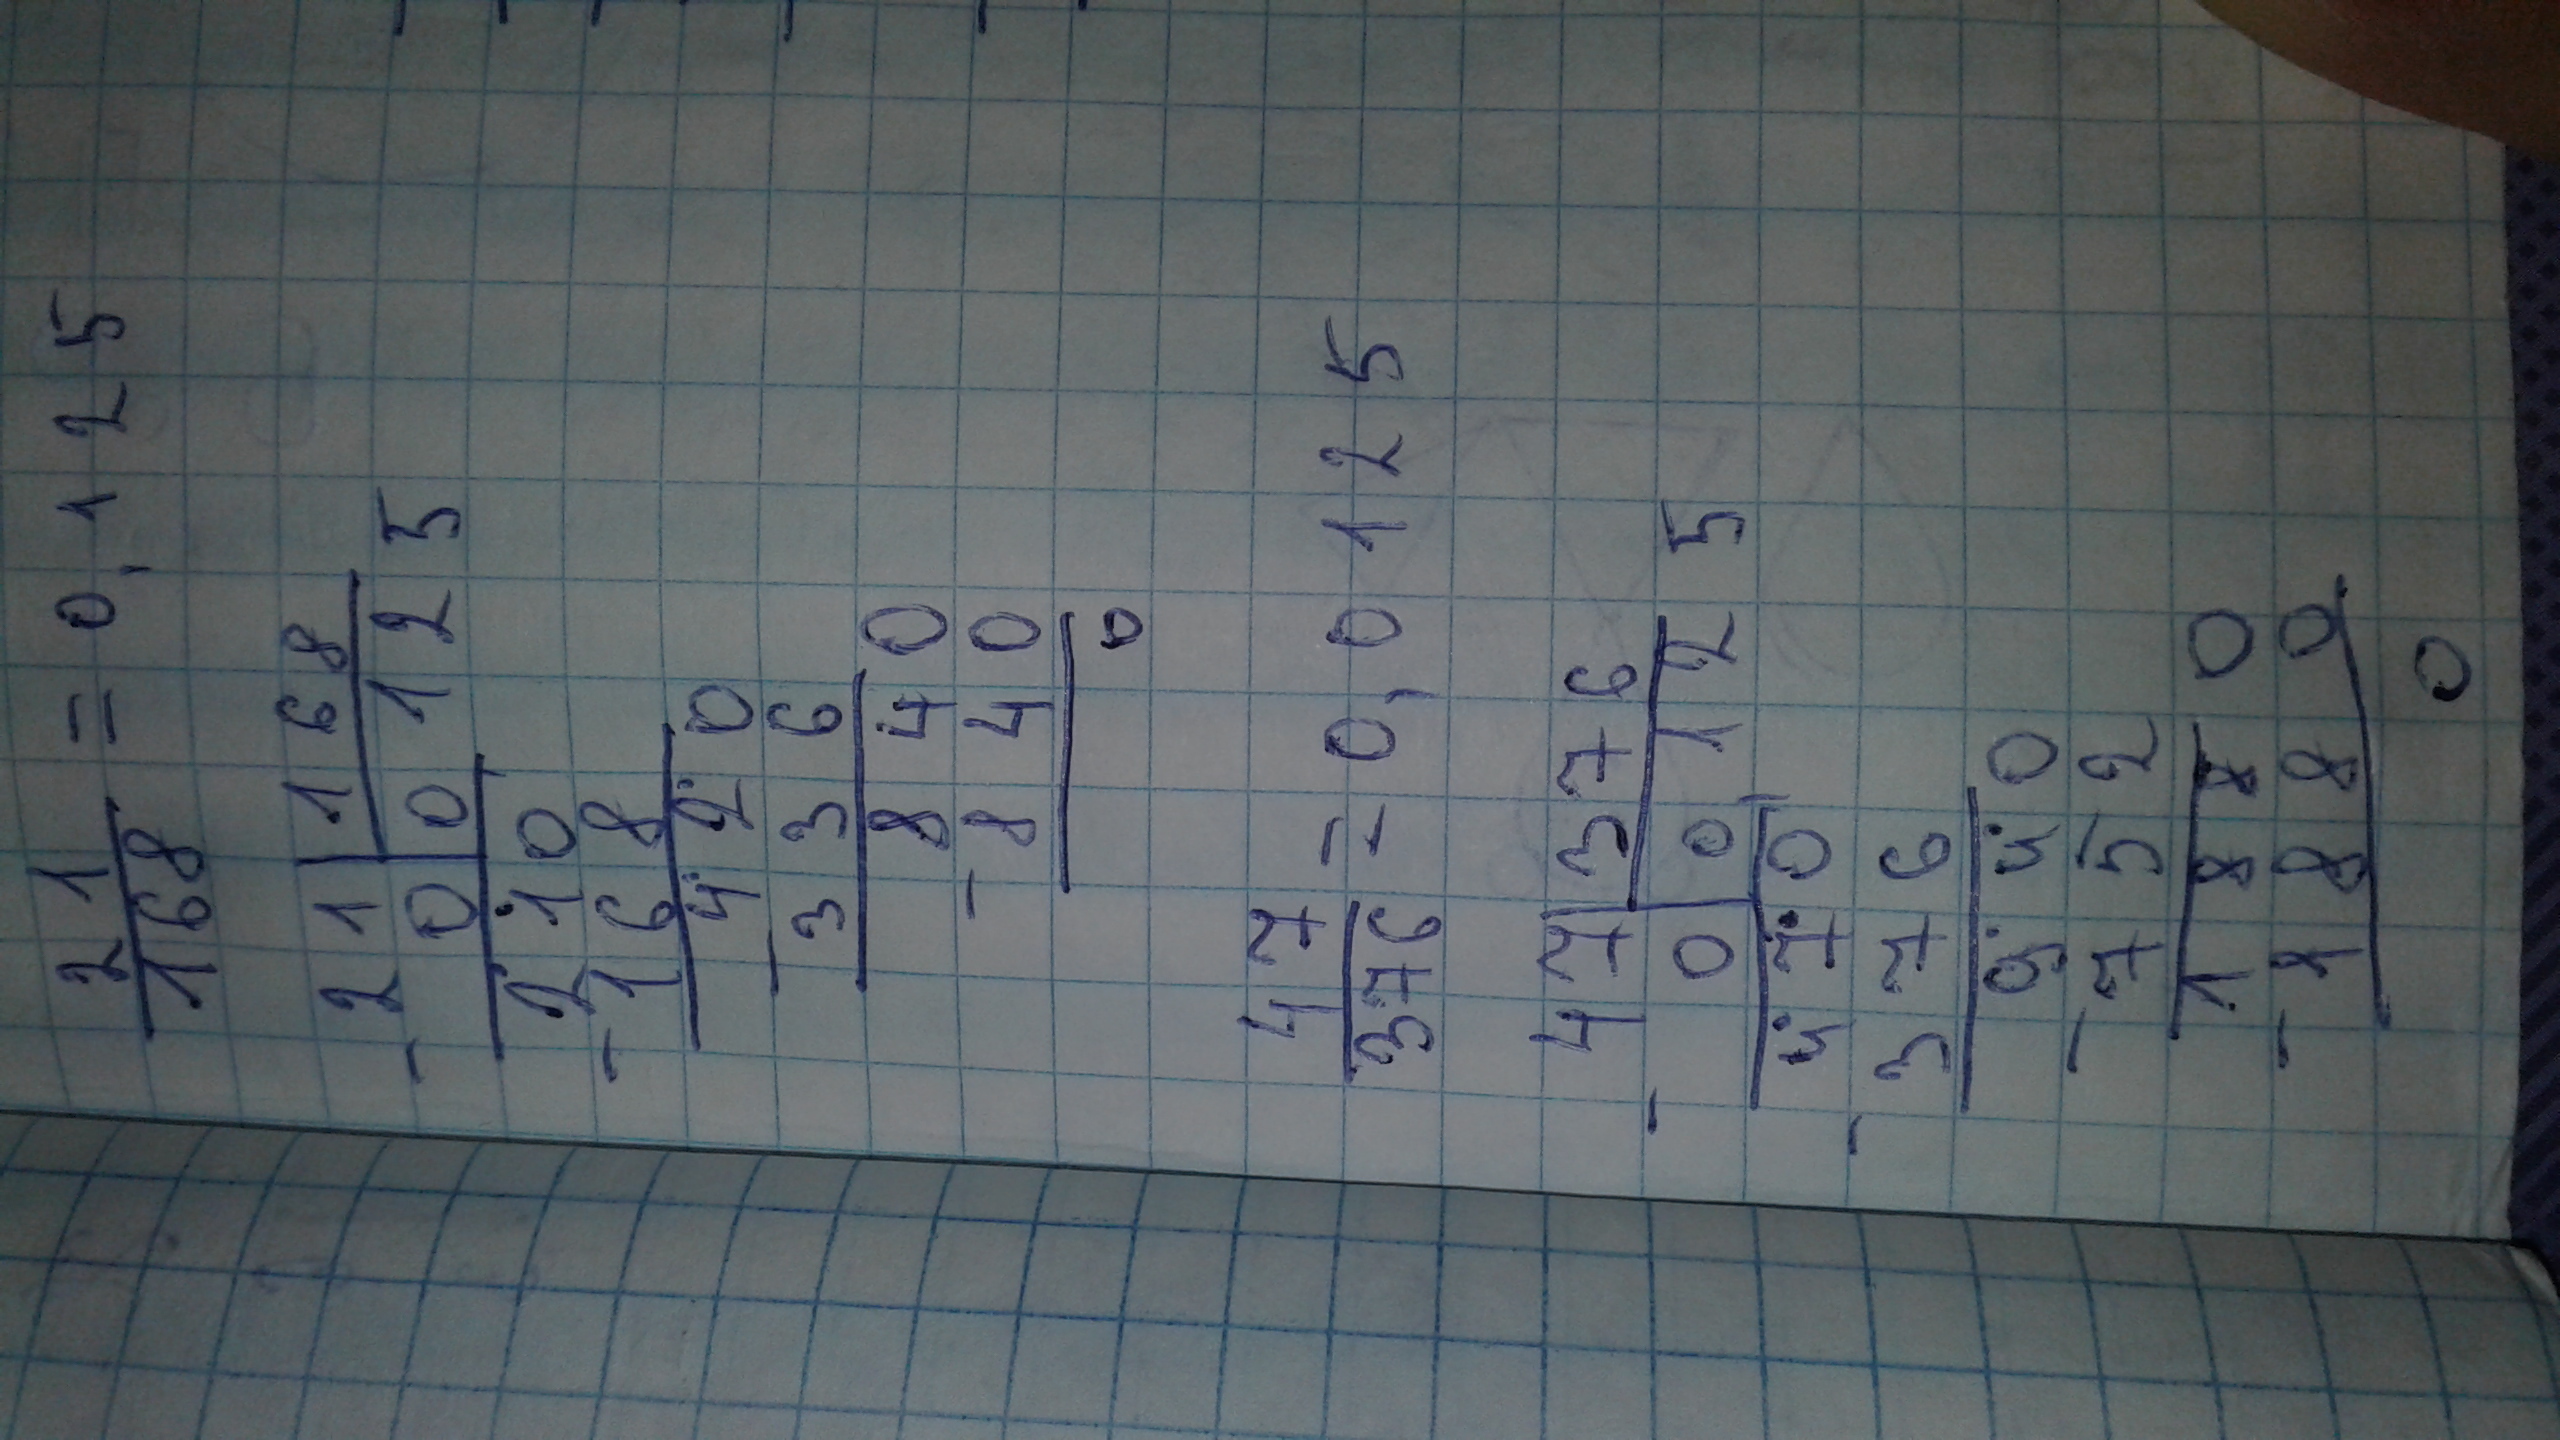 21/168 = 0,125
21 | 168
- 00 125
210
- 168
420
- 336
840
- 840
0
47/376 = 0,0125
47 | 376
- 00 125
470
- 376
940
- 752
1880
- 1880
0